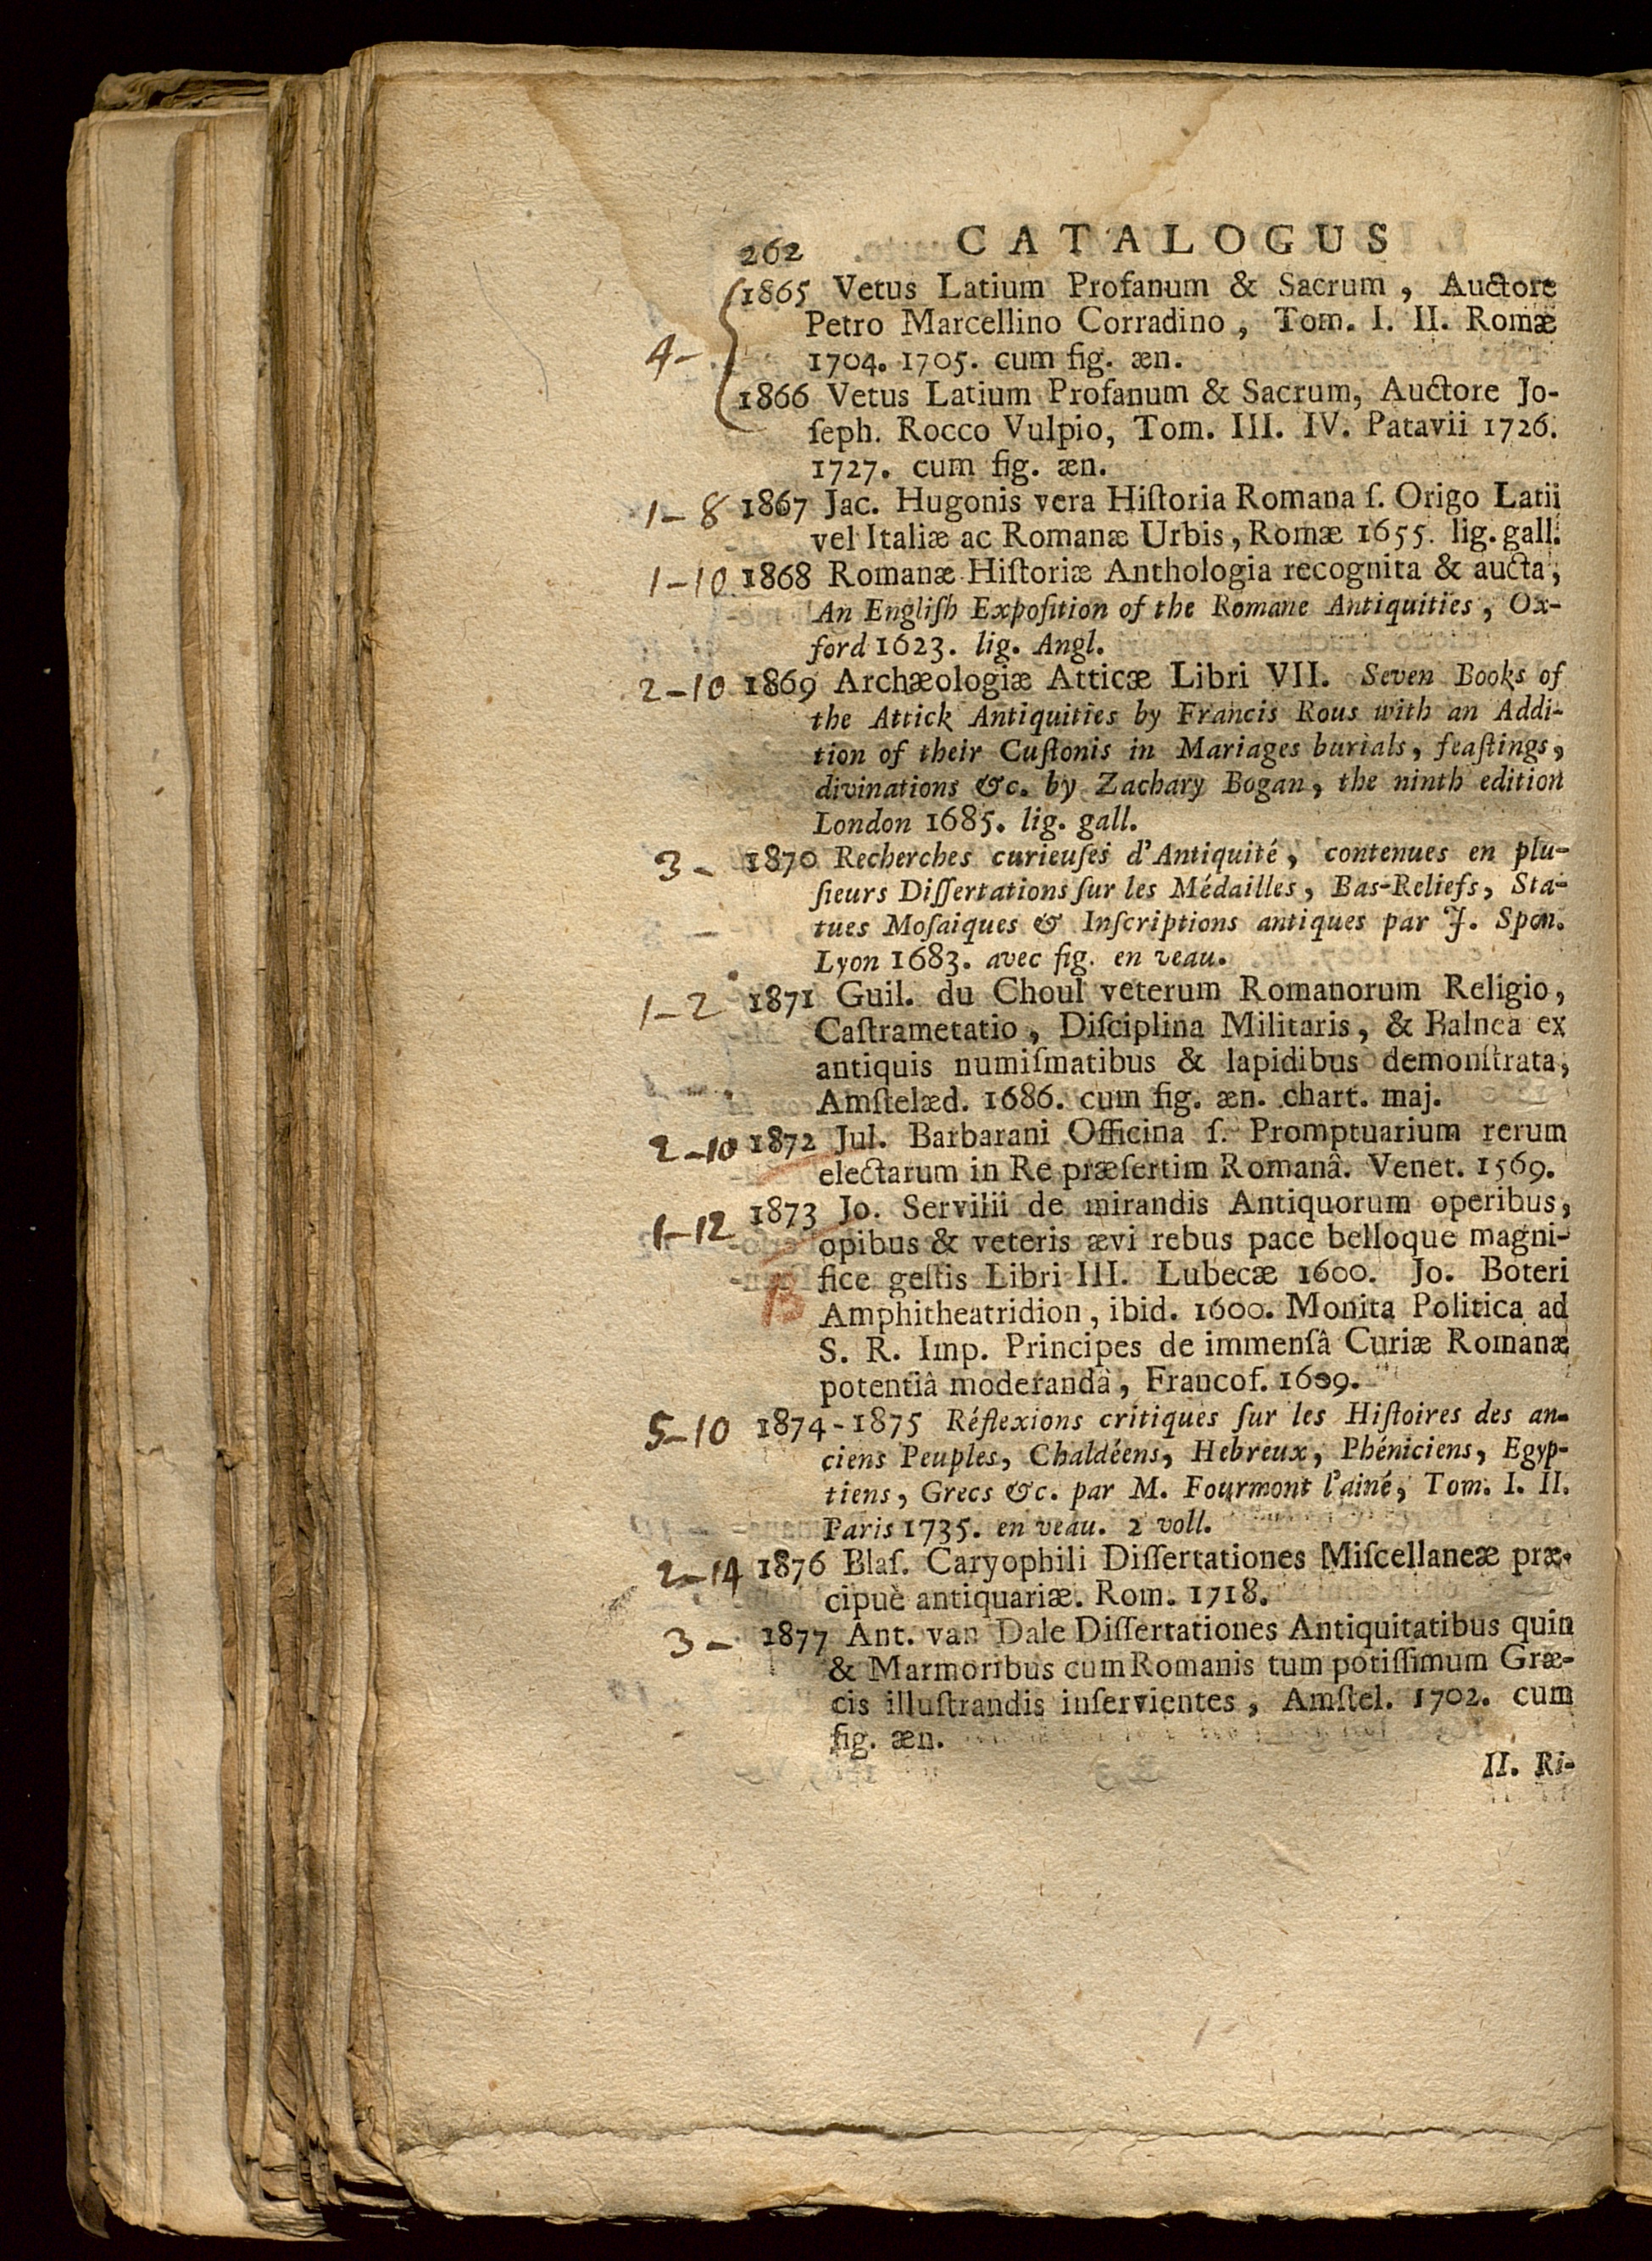 262 CATALOGUS
1865 Vetus Latium Profanum & Sacrum, Auctore
Petro Marcellino Corradino, Tom. I. II. Romæ
4- 1704. 1705. cum fig. æn.
1866 Vetus Latium Profanum & Sacrum, Auctore Jo-
ſeph. Rocco Vulpio, Tom. III. IV. Patavii 1726.
1727. cum fig. æn.
1-8 1867 Jac. Hugonis vera Hiſtoria Romana ſ. Origo Latii
vel Italiæ ac Romanæ Urbis, Romæ 1655. lig. gall.
1-10 1868 Romanæ Hiſtoriæ Anthologia recognita & aucta,
An Engliſh Expoſition of the Romane Antiquities, Ox-
ford 1623. lig. Angl.
2-10 1869 Archæologiæ Atticæ Libri VII. Seven Books of
the Attick Antiquities by Francis Rous with an Addi-
tion of their Cuſtonis in Mariages burials, feaſtings,
divinations &c. by Zachary Bogan, the ninth edition
London 1685. lig. gall.
3- 1870 Recherches curieuſes d'Antiquité, contenues en plu-
ſieurs Diſſertations ſur les Médailles, Bas-Reliefs, Sta-
tues Moſaiques & Inſcriptions antiques par J. Spon.
Lyon 1683. avec fig. en veau.
1-2 1871 Guil. du Choul veterum Romanorum Religio,
Caſtrametatio, Diſciplina Militaris, & Balnea ex
antiquis numiſmatibus & lapidibus demonſtrata,
Amſtelæd. 1686. cum fig. æn. chart. maj.
2-10 1872 Jul. Barbarani Officina ſ. Promptuarium rerum
electarum in Re præſertim Romanâ. Venet. 1569.
1-12 1873 Jo. Servilii de mirandis Antiquorum operibus,
opibus & veteris ævi rebus pace belloque magni-
fice geſtis Libri III. Lubecæ 1600. Jo. Boteri
B Amphitheatridion, ibid. 1600. Monita Politica ad
S. R. Imp. Principes de immenſâ Curiæ Romanæ
potentiâ moderandâ, Francof. 1609.
5-10 1874-1875 Réflexions critiques ſur les Hiſtoires des an-
ciens Peuples, Chaldéens, Hebreux, Phéniciens, Egyp-
tiens, Grecs &c. par M. Fourmont l'ainé, Tom. I. II.
Paris 1735. en veau. 2 voll.
2-14 1876 Blaſ. Caryophili Diſſertationes Miſcellaneæ præ-
cipuè antiquariæ. Rom. 1718.
3- 1877 Ant. van Dale Diſſertationes Antiquitatibus quin
& Marmoribus cum Romanis tum potiſſimum Græ-
cis illuſtrandis inſervientes, Amſtel. 1702. cum
fig. æn.
II. Ri-